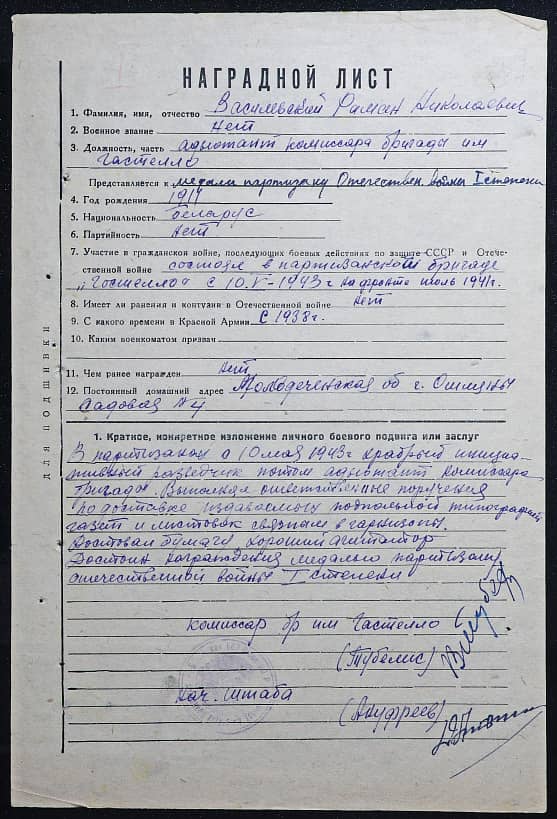 НАГРАДНОЙ ЛИСТ
1. Фамилия, имя, отчество Василевский Роман Николаевич
2. Военное звание Нет
3. Должность, часть адютант комиссара бригады им
Гастелло
Представляется к медали партизану Отечествен войны I степени
4. Год рождения 1917
5. Национальность беларус
6. Партийность Нет
7. Участие в гражданской войне, последующих боевых действиях по защите СССР и Отече-
ственной войне состоял в партизанской бригаде
„Гастелло" с 10.V-1943г на фронте июль 1941г.
8. Имеет ли ранения и контузии в Отечественной войне Нет
9. С какого времени в Красной Армии С 1938г.
10. Каким военкоматом призван
11. Чем ранее награжден Нет
12. Постоянный домашний адрес Молодеченская об г. Ошмяны
Садовая №4
для подшивки
1. Краткое, конкретное изложение личного боевого подвига или заслуг
В партизанах с 10 мая 1943г храбрый инициа-
тивный разведчик потом адютант комиссара
бригады. Выполнял ответственные поручения
по доставке издаваемых подпольной типографией
газет и листовок связным в гарнизоны.
Доставал бумагу, хороший агитатор
Достоин награждения медалью партизану
отечественной войны I степени
Комиссар бр им Гастелло
(Тубелис)
Нач. штаба
(Ануфреев)